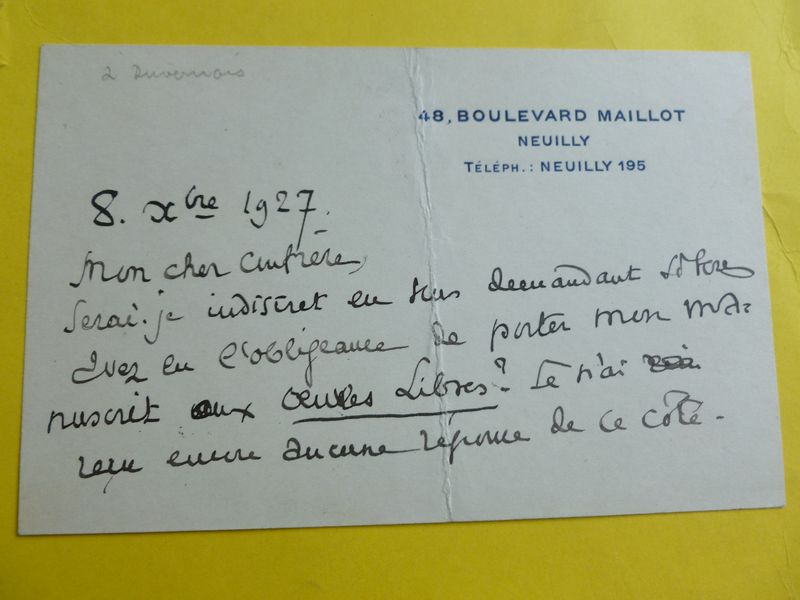 à Duvernois
48, BOULEVARD MAILLOT
NEUILLY
TÉLÉPH. : NEUILLY 195
8. xbre 1927.
Mon cher Confrère,
Serai-je indiscret en vous demandant si vous
avez eu l'obligeance de porter mon ma-
nuscrit aux Oeuvres Libres ? Je n'ai
reçu encore aucune réponse de ce côté.